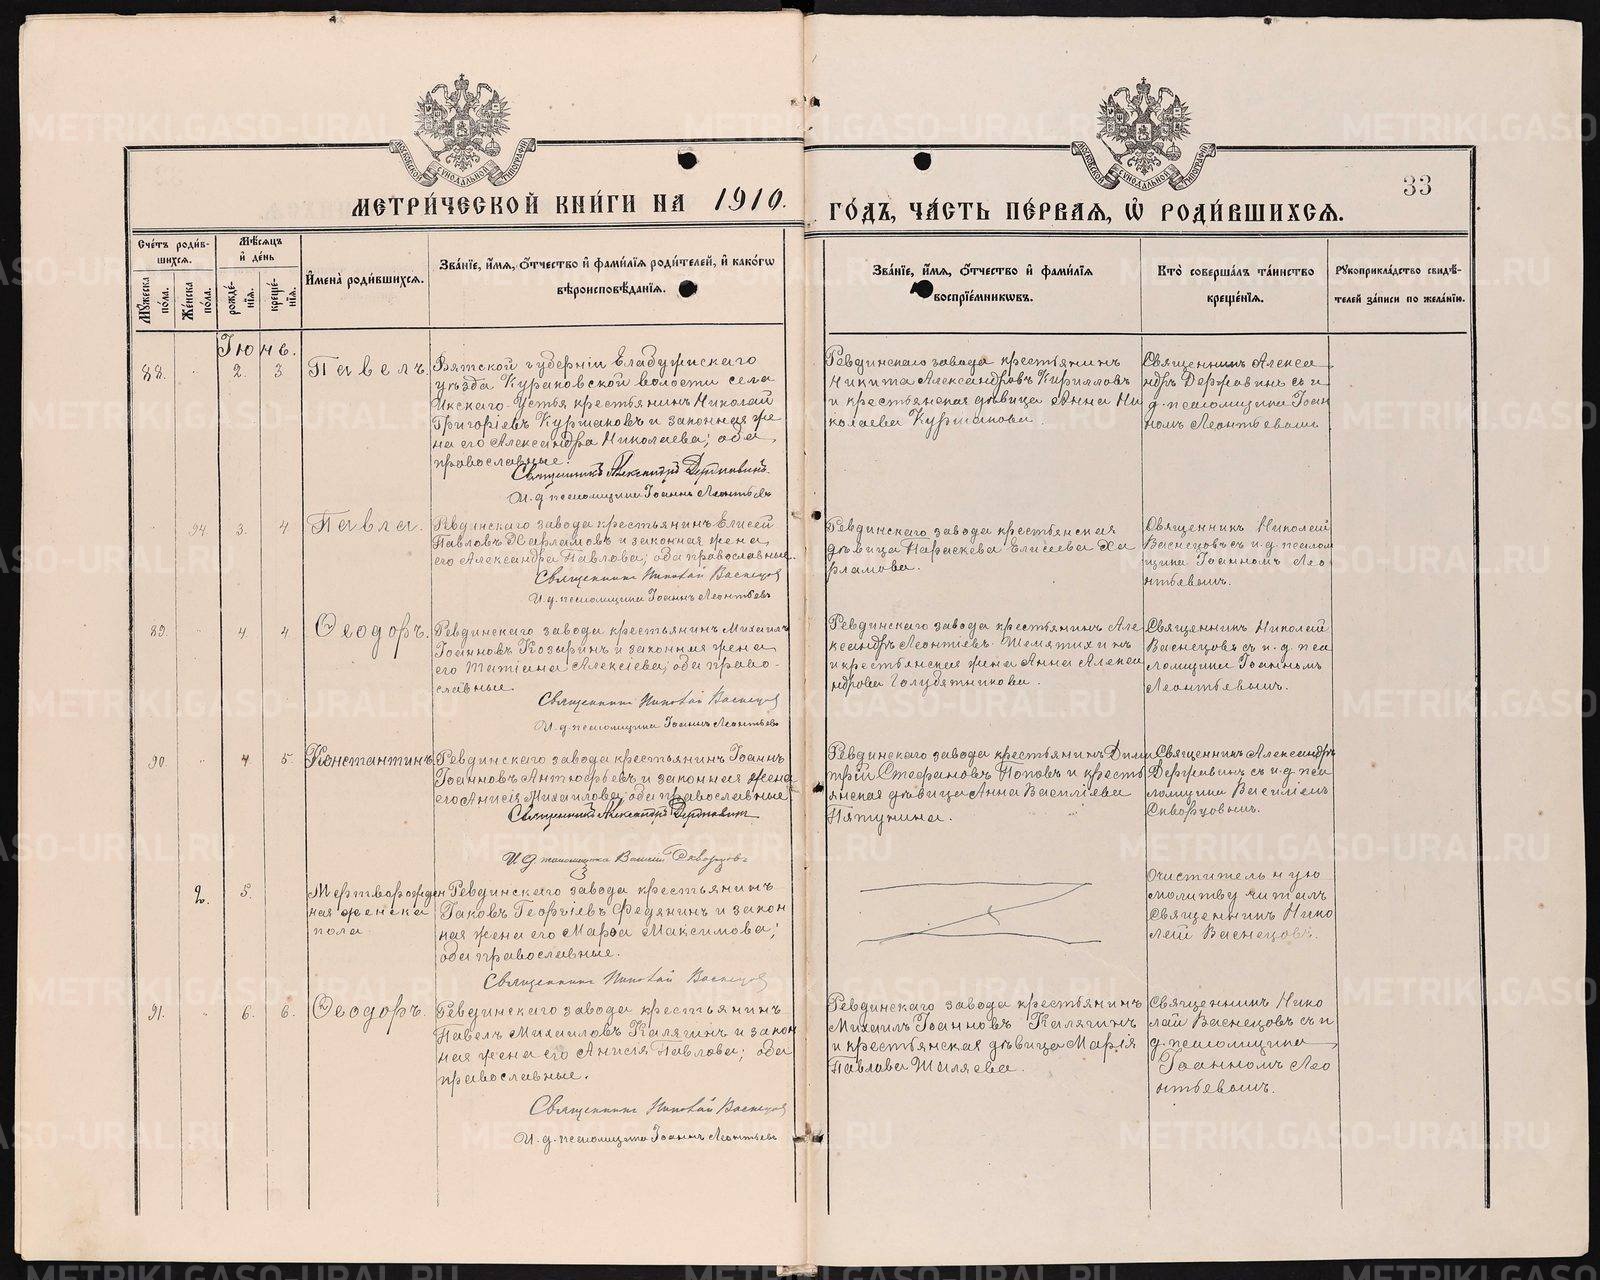 МЕТРИ́ЧЕСКОЙ КНИ́ГИ НА 1910.
ГО́ДЪ, ЧА́СТЬ ПЕ́РВАЯ, Ѡ РОДИ́ВШИХСЯ.
33
МОСКОВСКОЙ СѴНОДАЛЬНОЙ ТИПОГРАФІИ
МОСКОВСКОЙ СѴНОДАЛЬНОЙ ТИПОГРАФІИ
Сче́тъ роди́в-
шихся.
Мѣ́сяцъ
и҆ де́нь
Мꙋ́жеска по́ла.
Же́нска по́ла.
рожде́-
нїѧ.
креще́-
нїѧ.
И҆мена̀ роди́вшихся.
Зва́нїе, и҆́мѧ, ѻ҆́тчество и҆ фами́лїѧ роди́телей, и҆ како́гѡ
вѣроисповѣ́данїѧ.
Зва́нїе, и҆́мѧ, ѻ҆́тчество и҆ фами́лїѧ
воспрїе́мникѡвъ.
Кто̀ соверша́лъ та́инство
креще́нїѧ.
Рꙋкоприкла́дство свидѣ́-
телей за́писи по жела́нїю.
Іюнь.
88.
2.
3
Павелъ.
Вятской губерніи Елабужскаго
уѣзда Кураковской волости села
Икскаго-Устья крестьянинъ Николай
Григоріевъ Куршаковъ и законная же
на его Александра Николаева; оба
православные.
Священникъ Александръ Державинъ.
И. д. псаломщика Іоаннъ Леонтьевъ
Ревдинскаго завода крестьянинъ
Никита Александровъ Кириловъ
и крестьянская дѣвица Анна Ни
колаева Куршакова.
Священникъ Алекса
ндръ Державинъ съ и
д. псаломщика Іоан
номъ Леонтьевымъ
94.
3.
4
Павла.
Ревдинскаго завода крестьянинъ Елисей
Павловъ Харламовъ и законная жена
его Александра Павлова; оба православные.
Священникъ Николай Васнецовъ
И. д. псаломщика Іоаннъ Леонтьевъ
Ревдинскаго завода крестьянская
дѣвица Параскева Елисеева Ха
рламова.
Священникъ Николай
Васнецовъ съ и. д. псалом
щика Іоанномъ Лео
нтьевымъ.
89.
4.
4
Ѳеодоръ.
Ревдинскаго завода крестьянинъ Михаилъ
Іоанновъ Козыринъ и законная жена
его Татіана Алексіева; оба право-
славные.
Священникъ Николай Васнецовъ
И. д. псаломщика Іоаннъ Леонтьевъ
Ревдинскаго завода крестьянинъ Але
ксандръ Леонтіевъ Шемятихинъ
и крестьянская жена Анна Алекса
ндрова Голубятникова.
Священникъ Николай
Васнецовъ съ и. д. пса
ломщика Іоанномъ
Леонтьевымъ.
90.
4.
5.
Константинъ.
Ревдинскаго завода крестьянинъ Іоаннъ
Іоанновъ Антюфьевъ и законная жена
его Анисія Михаилова; оба православные
Священникъ Александръ Державинъ
И. д. псаломщика Василій Скворцовъ
Ревдинскаго завода крестьянинъ Дими
трій Стефановъ Поповъ и кресть
янская дѣвица Анна Василіева
Пятунина.
Священникъ Александръ
Державинъ съ и. д. пса
ломщика Василіемъ
Скворцовымъ.
2.
5.
Мертворожден
ная женска
пола
Ревдинскаго завода крестьянинъ
Іаковъ Георгіевъ Федянинъ и закон
ная жена его Марѳа Максимова;
оба православные.
Священникъ Николай Васнецовъ
Очистительную
молитву читалъ
Священникъ Нико
лай Васнецовъ.
91.
6.
6.
Ѳеодоръ.
Ревдинскаго завода крестьянинъ
Павелъ Михаиловъ Калягинъ и закон
ная жена его Анисія Павлова; оба
православные.
Священникъ Николай Васнецовъ
И. д. псаломщика Іоаннъ Леонтьевъ
Ревдинскаго завода крестьянинъ
Михаилъ Іоанновъ Калягинъ
и крестьянская дѣвица Марія
Павлова Шаляева.
Священникъ Нико
лай Васнецовъ съ и
д. псаломщика
Іоанномъ Лео
нтьевымъ.
METRIKI.GASO-URAL.RU